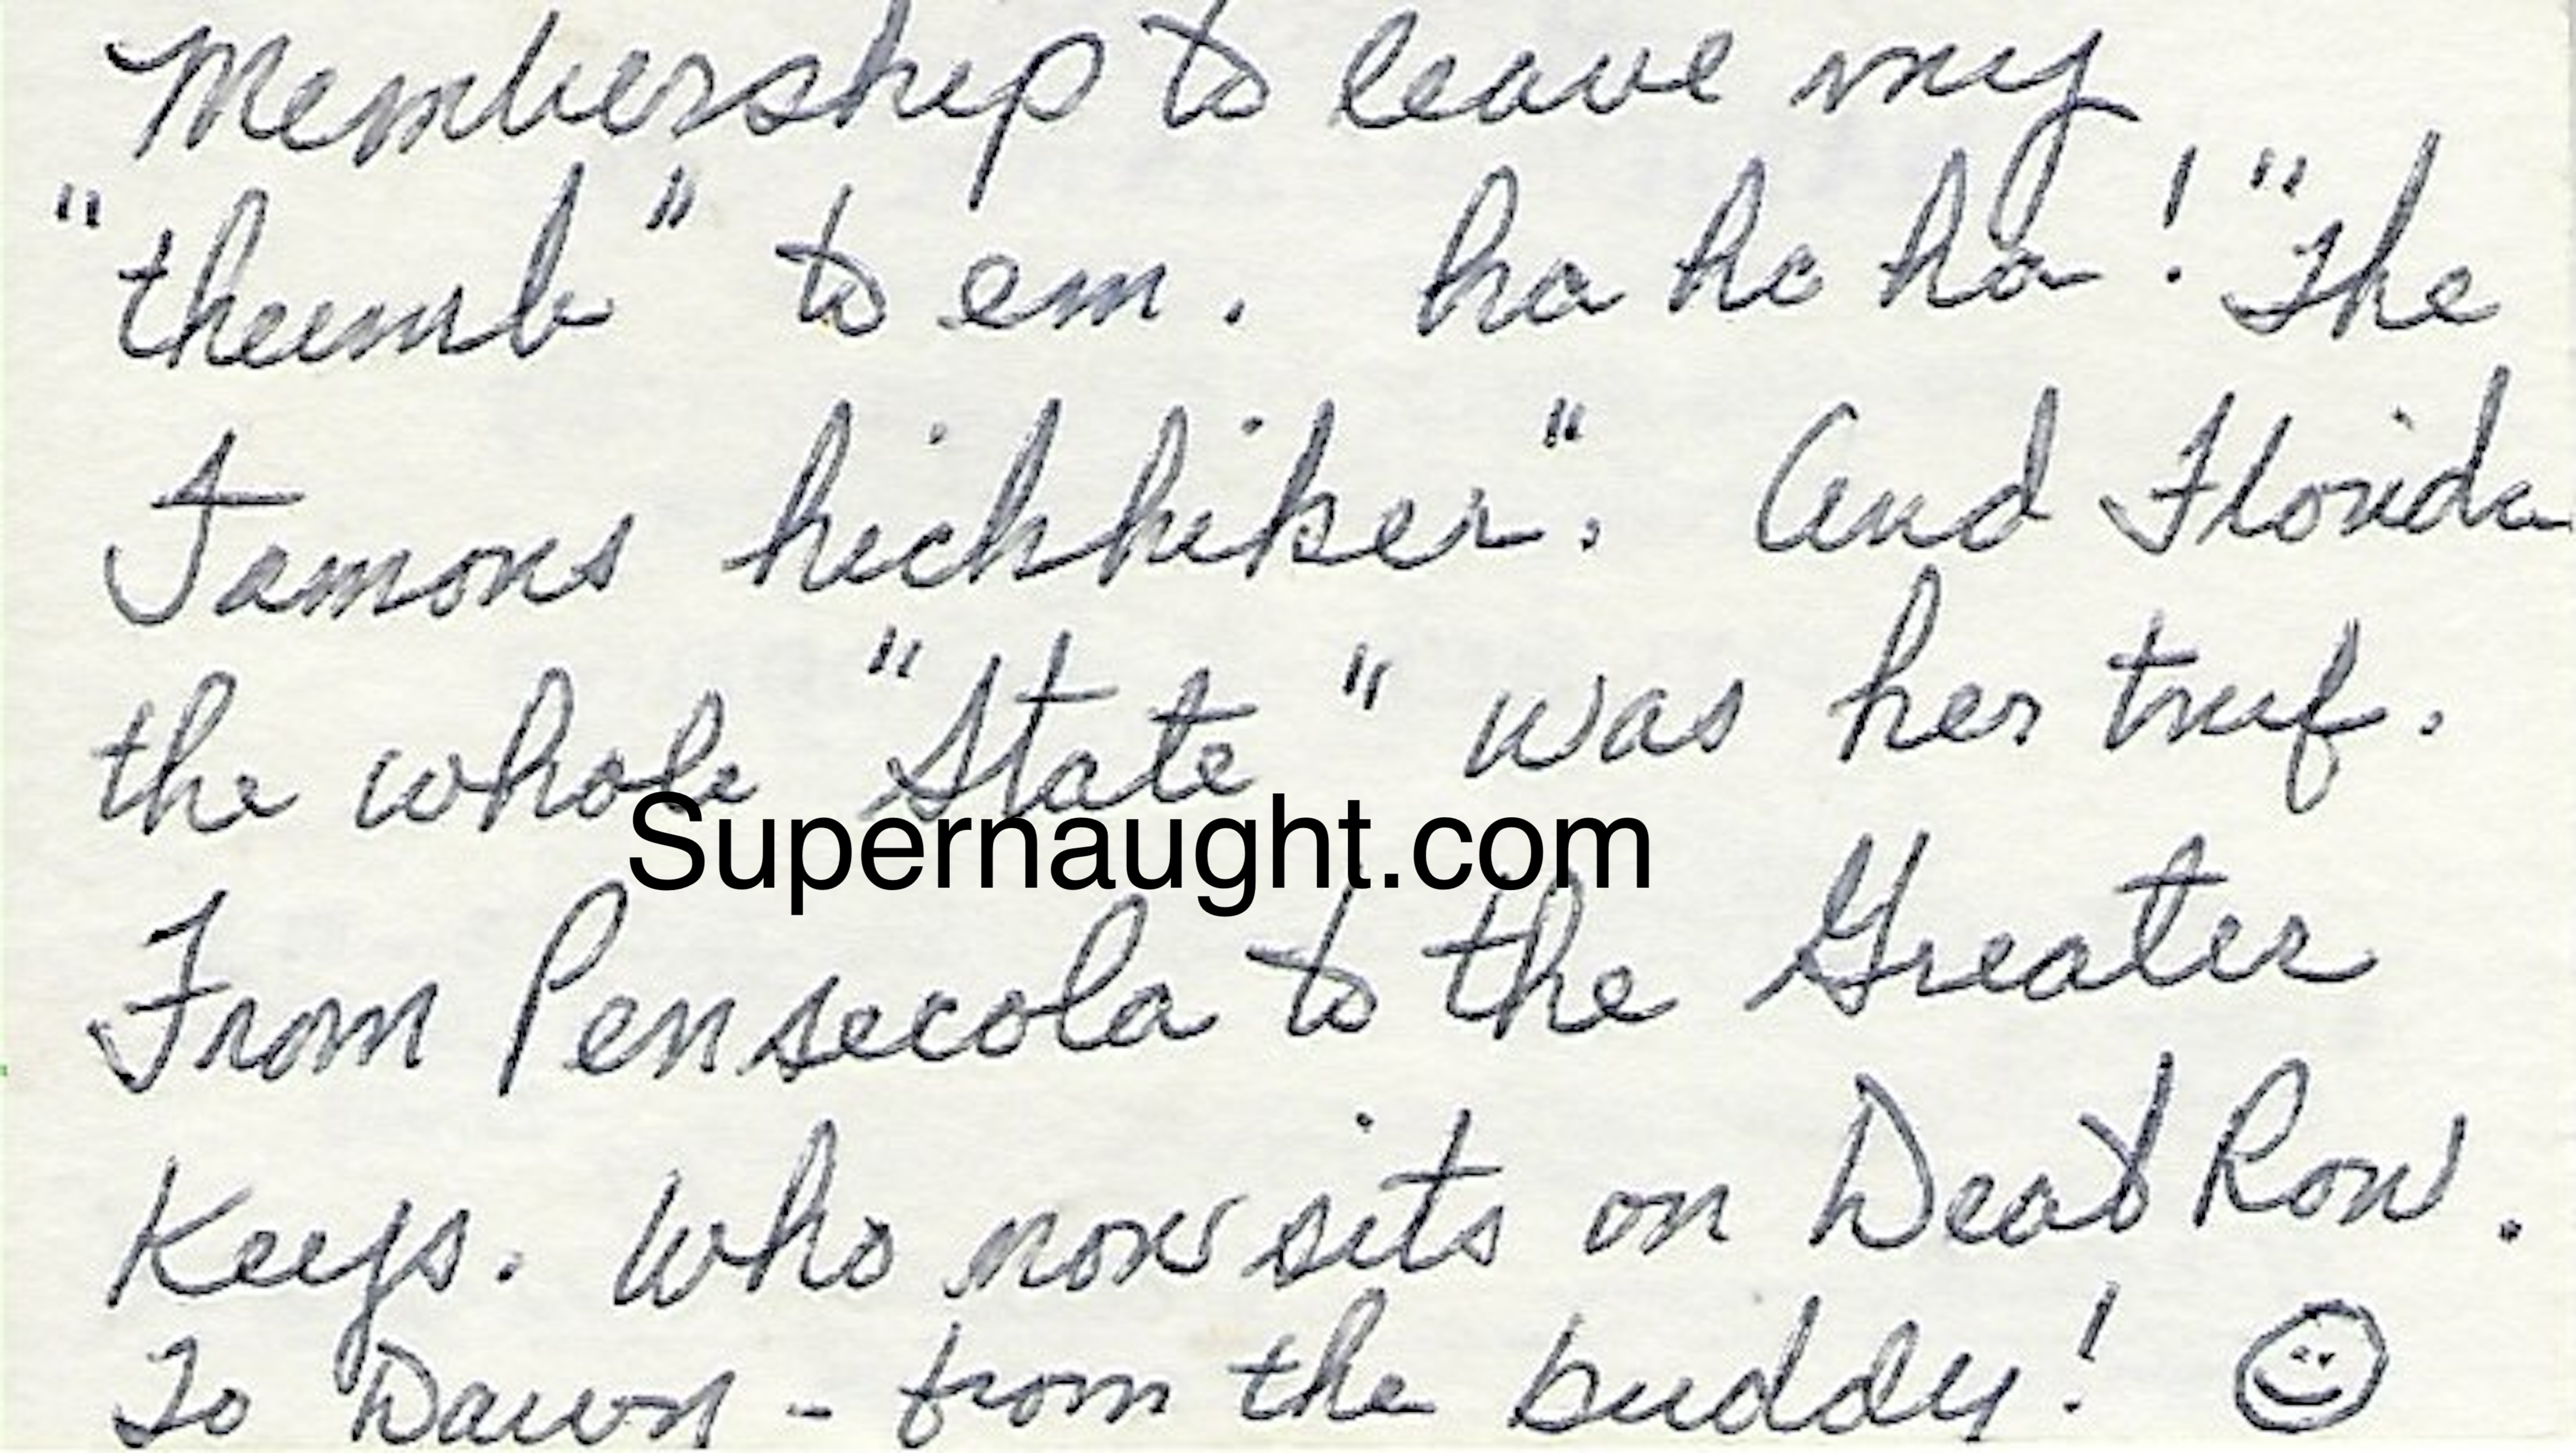 Membership to leave my
"thumb" to em. ha ha ha! "The
Famous hichhiker". And Florida
the whole "State" was her truf.
Supernaught.com
From Pensecola to the Greater
Keys. Who now sits on Deat Row.
To Dawn - from the buddy!